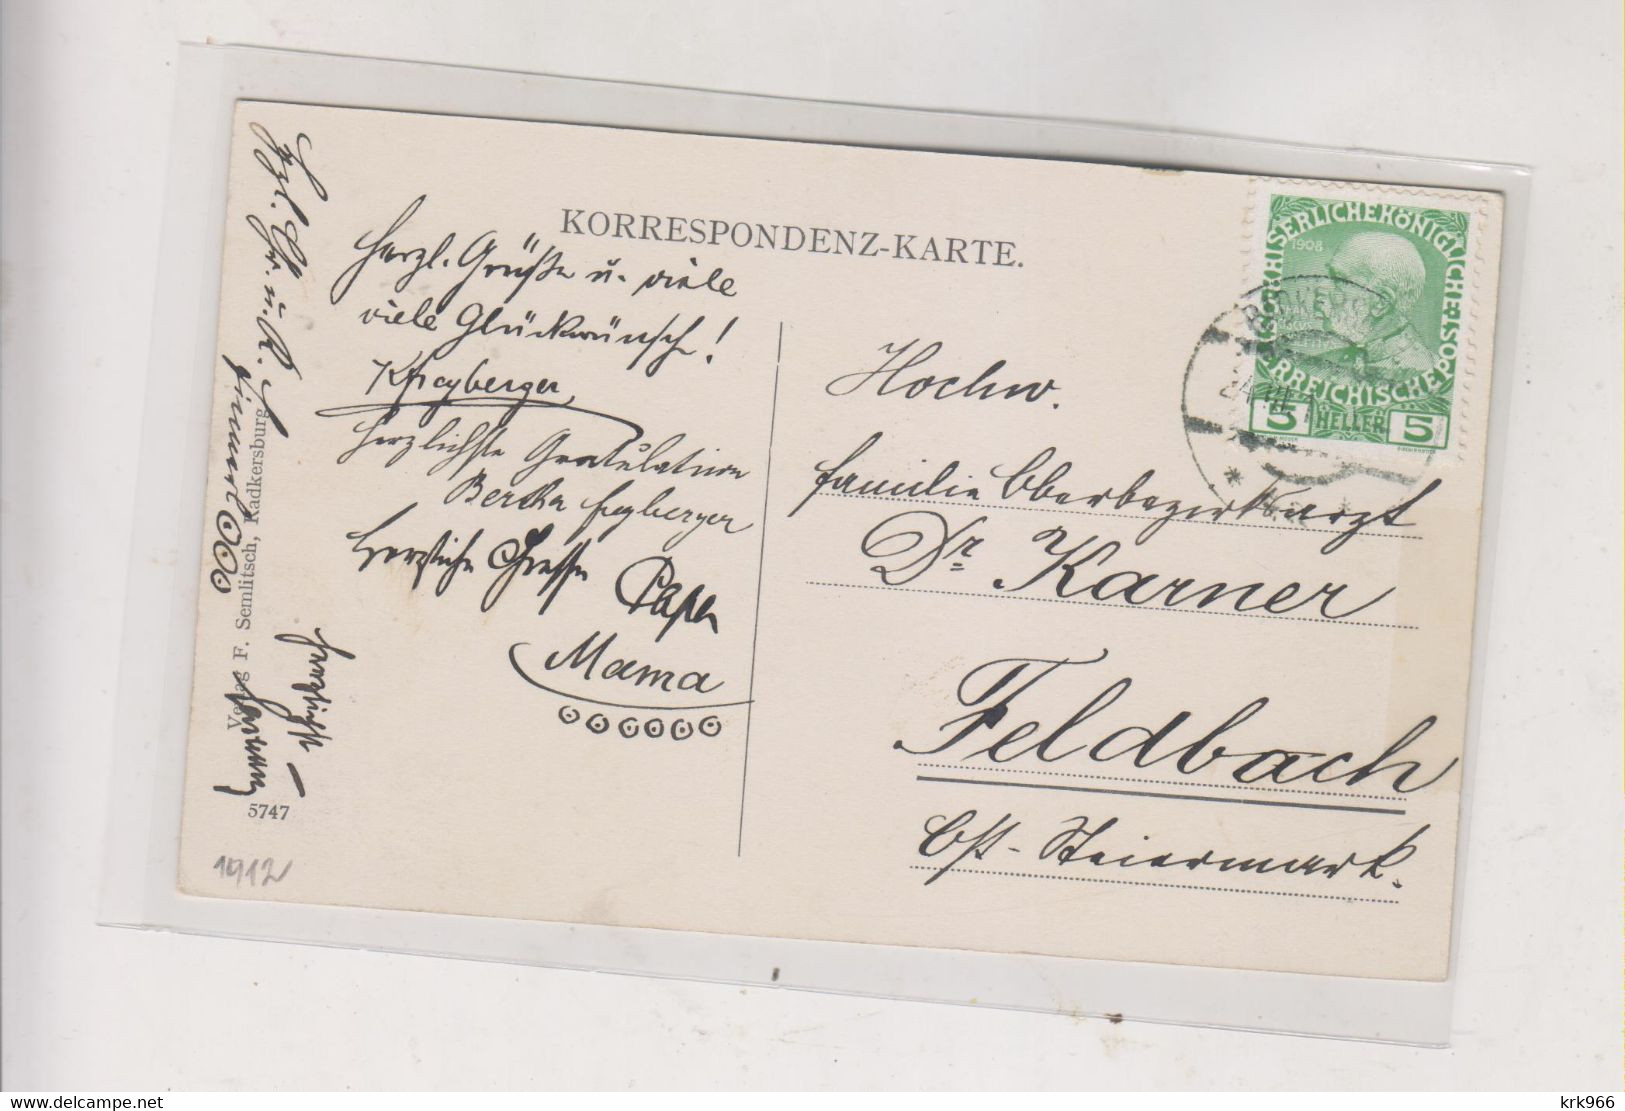 KORRESPONDENZ-KARTE.
Herzl. Grüße u. viele
viele Glückwünsche!
Herzlichste Gratulation
Bertha
Herzliche Grüsse Papa
Mama
Hochw.
Familie Oberbezirksarzt
Dr. Karner
Feldbach
Ost-Steiermark.
KAISERLICHE KÖNIGLICHE ÖSTERREICHISCHE POST
1908
5 HELLER 5
24. III. 1
Verlag F. Semlitsch, Radkersburg
5747
1912
Hzl. Gr. u. K.
delcampe.net
krk966